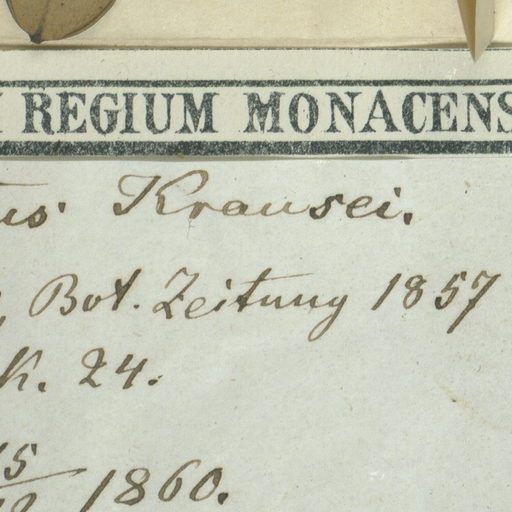 REGIUM MONACENS
us Krausei.
Bot. Zeitung 1857
K. 24.
15 1860.